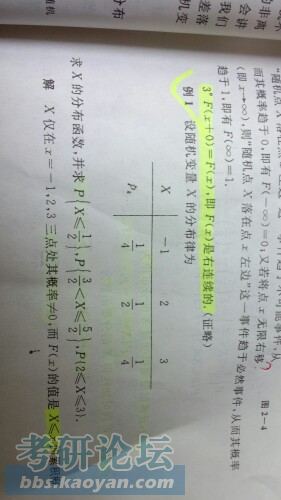 趋于不可能事件,从
而其概率趋于 0,即有 F(-∞)=0;又若将点 x 无限右移
图 2-4
(即 x→∞),则“随机点 X 落在点 x 左边”这一事件趋于必然事件,从而其概率
趋于 1,即有 F(∞)=1.
3° F(x+0)=F(x),即 F(x)是右连续的.(证略)
例 1 设随机变量 X 的分布律为
X -1 2 3
pₖ 1/4 1/2 1/4
求 X 的分布函数,并求 P{X≤1/2},P{3/2<X≤5/2},P{2≤X≤3}.
解 X 仅在 x=-1,2,3 三点处其概率≠0,而 F(x)的值是 X≤
考研论坛
bbs.kaoyan.com